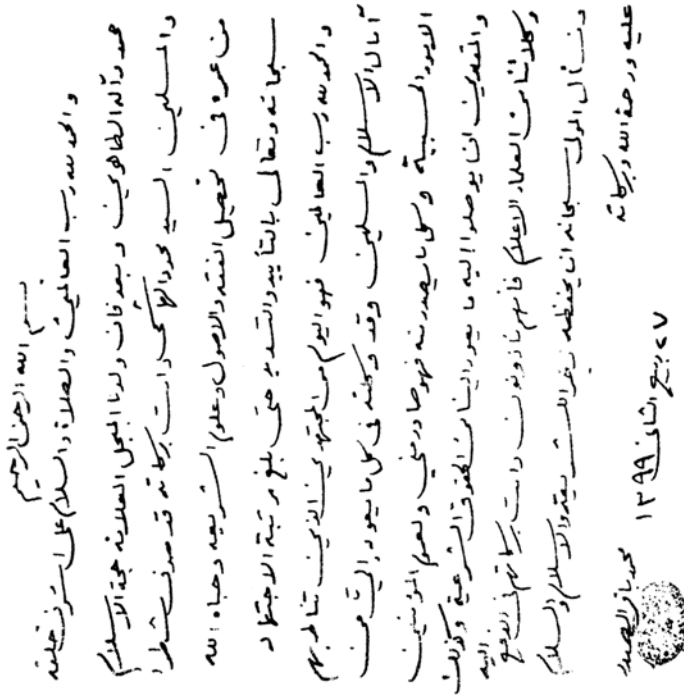 بسم الله الرحمن الرحيم
والحمد لله رب العالمين والصلاة والسلام على اشرف خلقه
محمد وآله الطاهرين وبعد فان ولدنا المبجل العلامة حجة الاسلام
والمسلمين السيد محمود الهاشمي دامت بركاته قد صرف شطرا
من عمره في تحصيل الفقه والاصول وعلوم الشريعة وحباه الله
سبحانه وتعالى بالتأييد والتسديد حتى بلغ مرتبة الاجتهاد
والحمد لله رب العالمين فهو اليوم من المجتهدين الذين تناط بهم
آمال الاسلام والمسلمين وقد وكلته في كل ما يعود الي من
الامور الحسبية وكل ما يصدر منه فهو صادر مني ولعموم المؤمنين
والمقلدين ان يوصلوا إليه ما يعود الينا من الحقوق الشرعية وكذلك
وكلائنا من العلماء الاعلام فأنهم مأذونون دامت بركاتهم في الدفع اليه
ونسأل المولى سبحانه ان يحفظه ذخرا للاسلام والسلام
عليه ورحمة الله وبركاته
٢٧ ربيع الثاني ١٣٩٩
محمد باقر الصدر